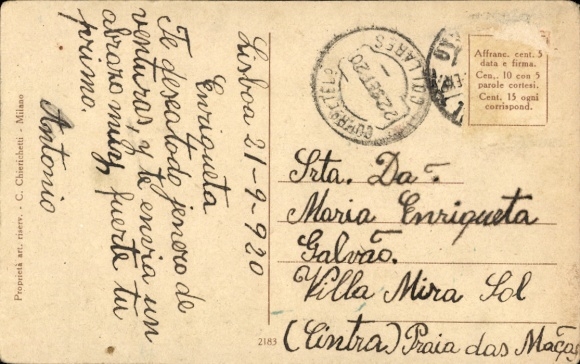 Lisboa 21-9-920
Enriqueta
Te desea todo jenero de
venturas, y te envia un
abrazo muy fuerte tu
primo.
Antonio
Proprietà art. riserv. - C. Chierichetti - Milano
2183
22 SET 20
Affranc. cent. 5
data e firma.
Cen. 10 con 5
parole cortesi.
Cent. 15 ogni
corrispond.
Srta. Da.
Maria Enriqueta
Galvão.
Villa Mira Sol
(Cintra) Praia das Maças